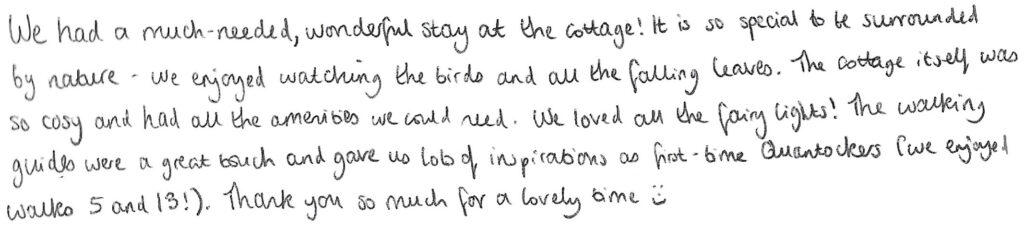 We had a much-needed, wonderful stay at the cottage! It is so special to be surrounded
by nature - we enjoyed watching the birds and all the falling leaves. The cottage itself was
so cosy and had all the amenities we could need. We loved all the fairy lights! The walking
guides were a great touch and gave us lots of inspirations as first-time Quantockers (we enjoyed
walks 5 and 13!). Thank you so much for a lovely time :)